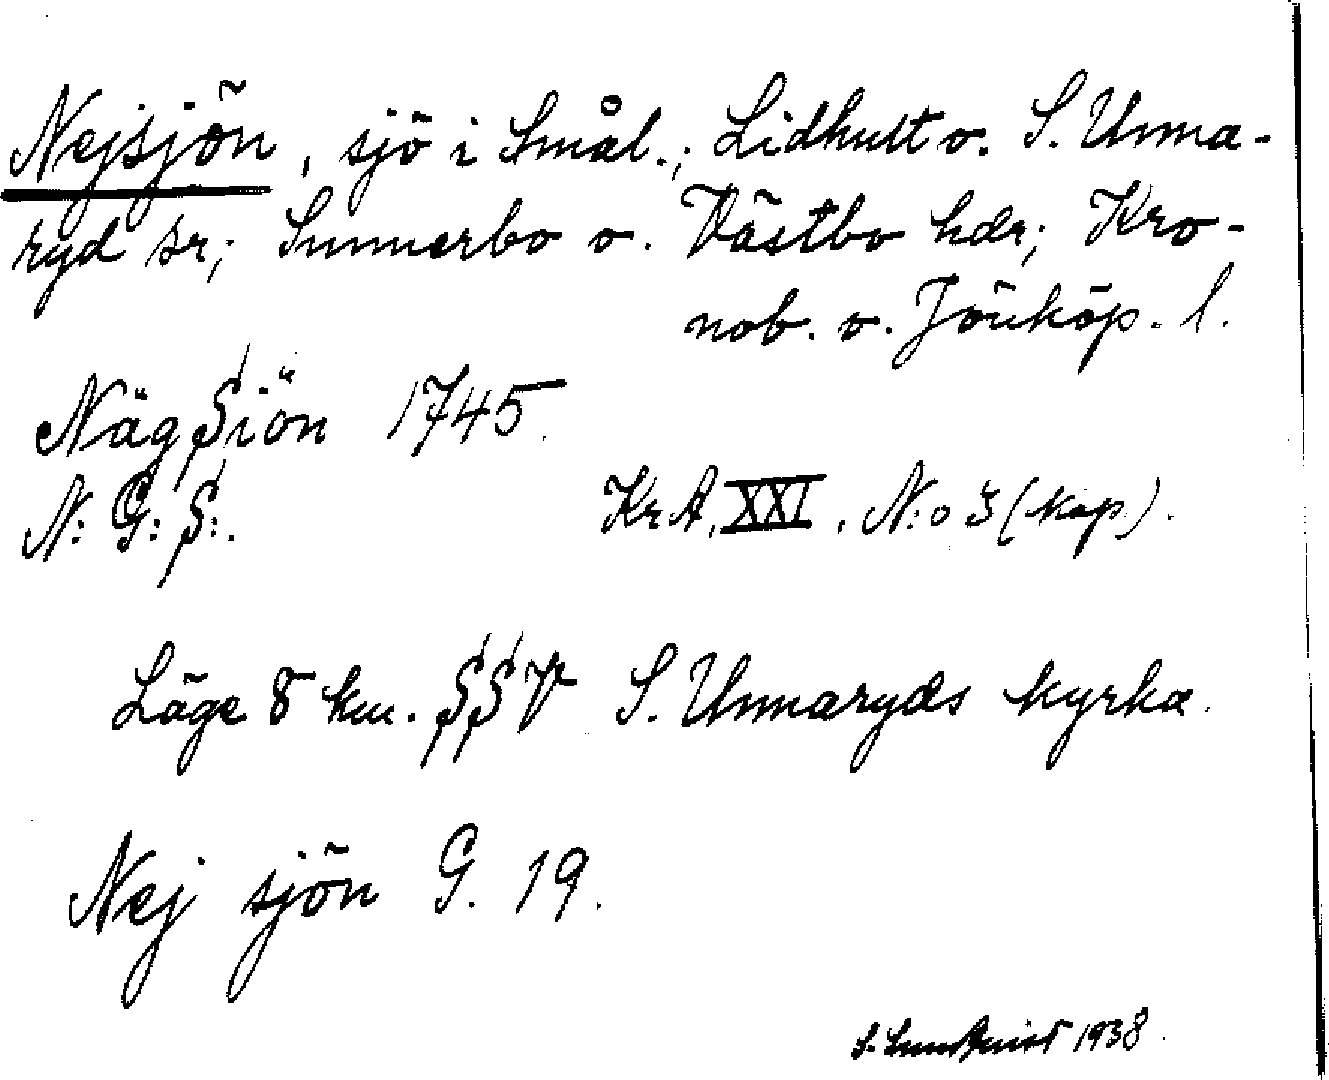 Nejsjön, sjö i Smål.; Lidhult o. S. Unna-
ryd sr; Sunnerbo o. Västbo hdr; Kro-
nob. o. Jönköp. l.
Näg Siön 1745.
N: G: S:. Kr A. XXI. N:o 3 (kop).
Läge 8 km. SSV S. Unnaryds kyrka.
Nej sjön G. 19.
S. Sundquist 1938.